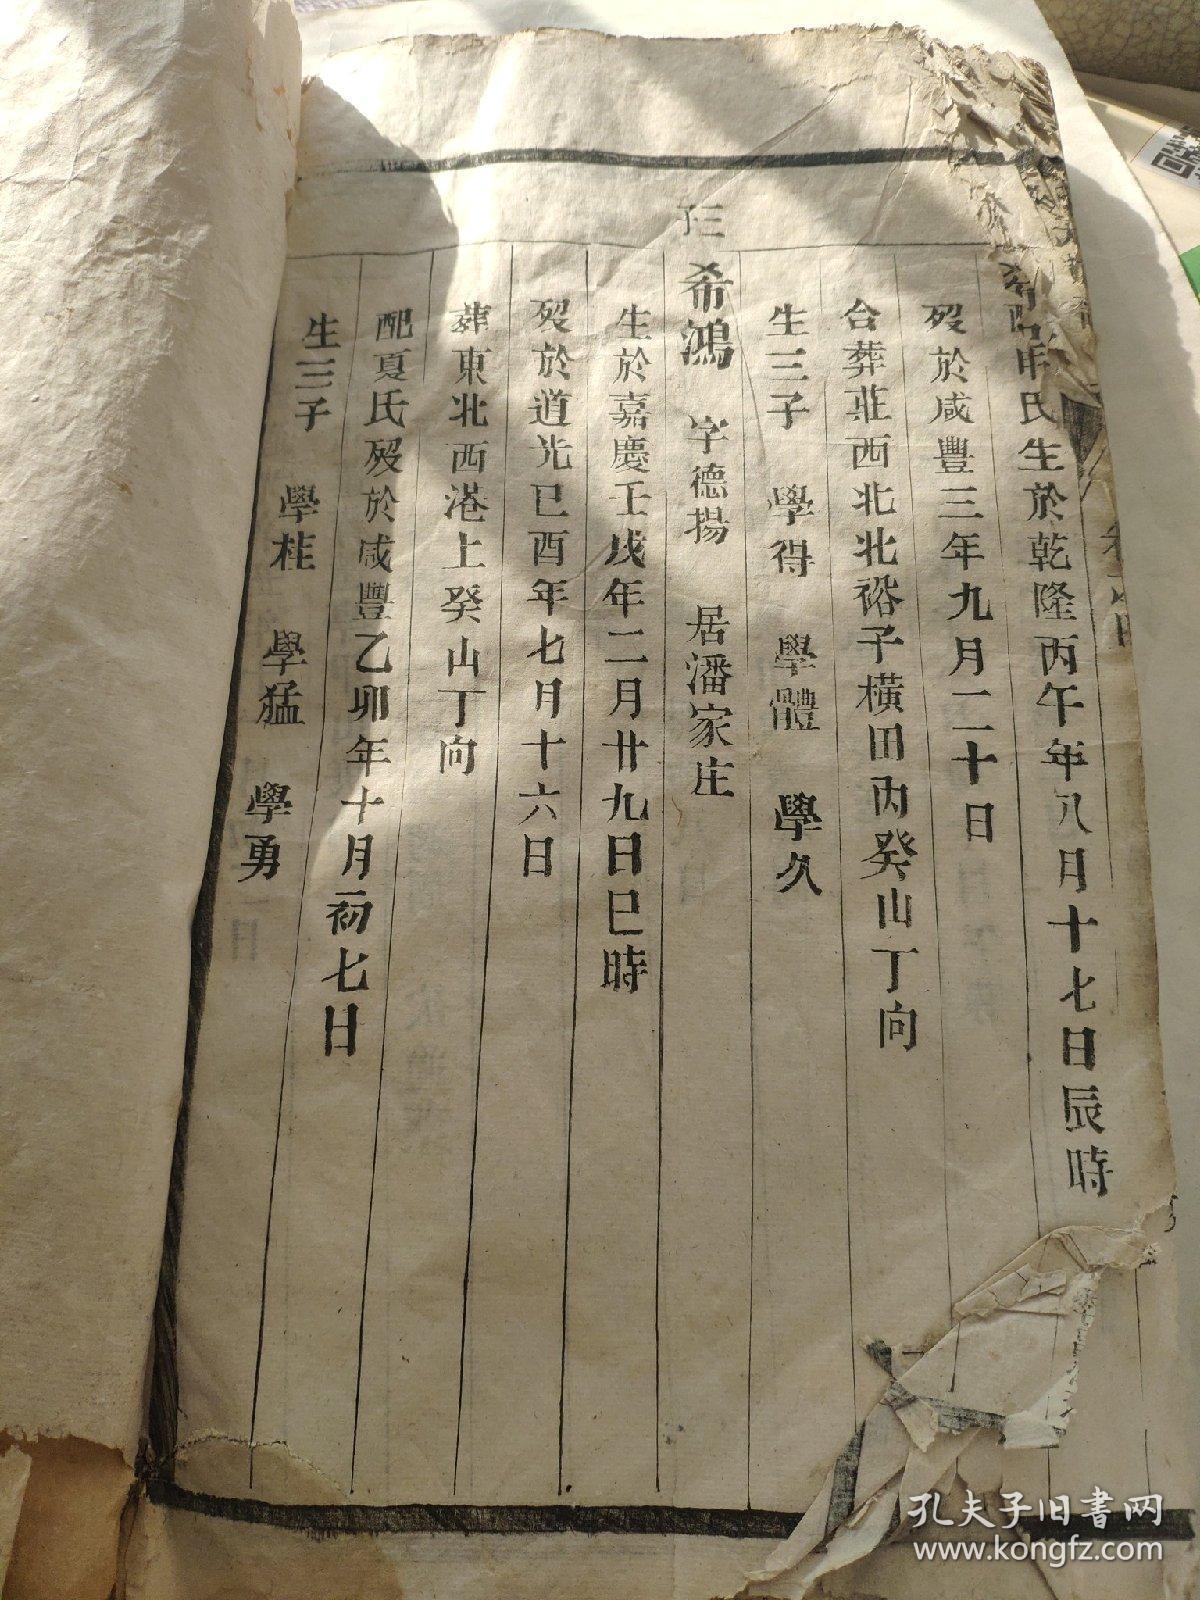 氏生於乾隆丙午年八月十七日辰時
歿於咸豐三年九月二十日
合葬莊西北北裕子横田丙癸山丁向
生三子 學得 學體 學久
三 希鴻 字德揚 居潘家庄
生於嘉慶壬戌年二月廿九日巳時
歿於道光己酉年七月十六日
葬東北西港上癸山丁向
配夏氏歿於咸豐乙卯年十月初七日
生三子 學桂 學猛 學勇
孔夫子旧书网
www.kongfz.com